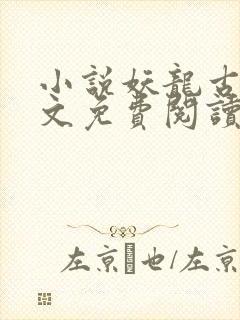 小説妖龍古
文免費閱讀
左京也/左京